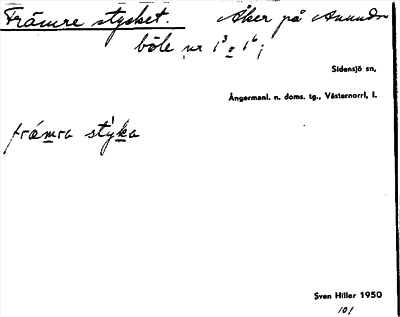 Främre stycket. Åker på Anunds-
böle nr 1³ o 1⁶;
Sidensjö sn,
Ångermanl. n. doms. tg., Västernorrl, l.
främra stýka
Sven Hiller 1950
101